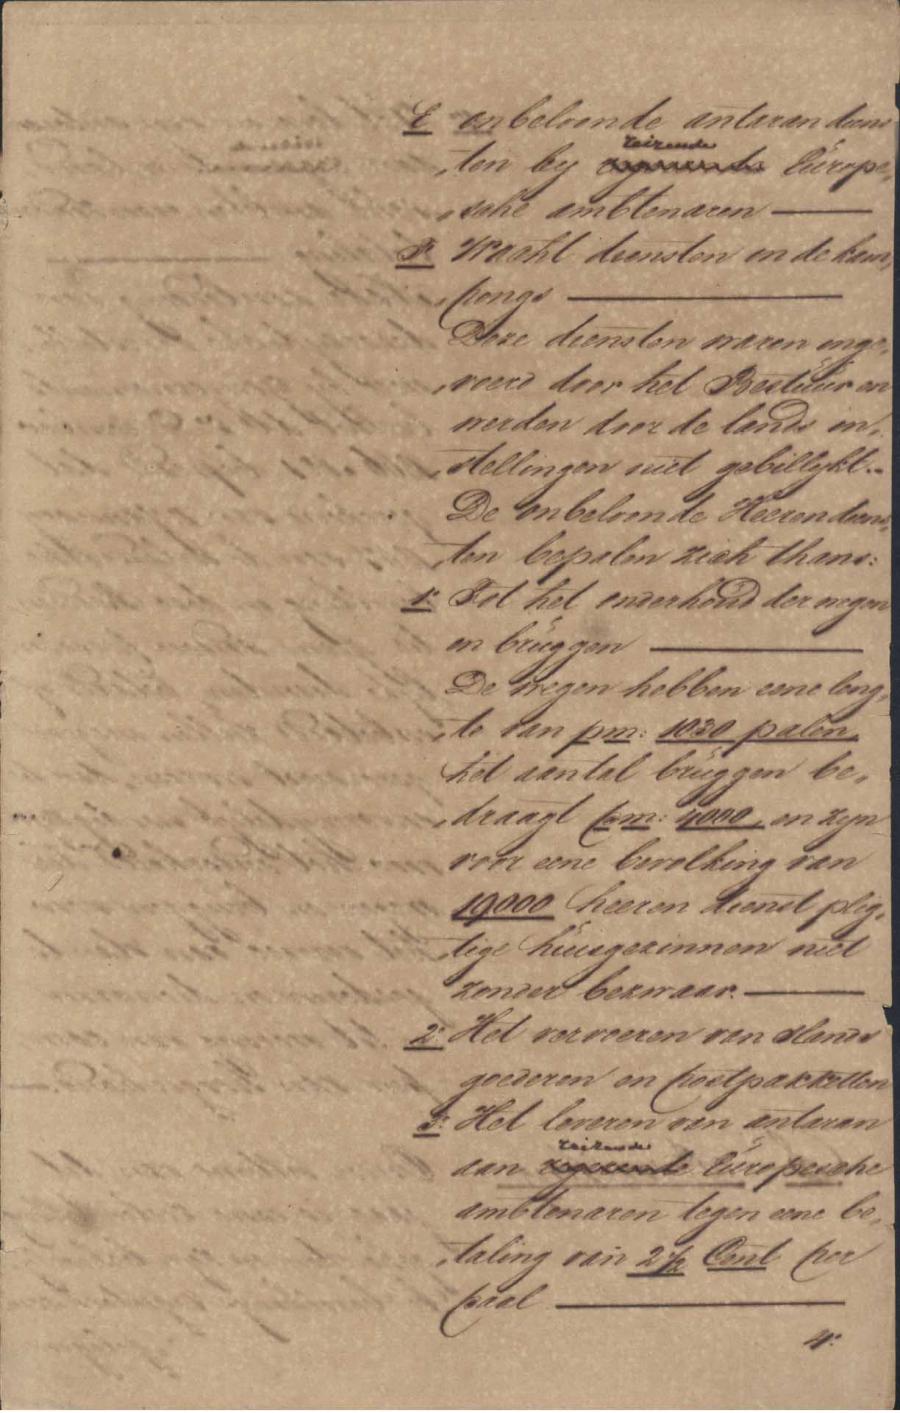 E onbeloonde antaran diens
„ten by reizende Europe„
„sche ambtenaren
F. Wacht diensten in de kam„
„pongs
Deze diensten waren inge„
„voerd door het Bestuur en
werden door de lands in„
„stellingen niet gebillykt.
De onbeloonde Heerendiens„
„ten bepalen zich thans:
1: Tot het onderhoud der wegen
en bruggen
De wegen hebben eene leng„
„te van pm: 1020 palen,
het aantal bruggen be„
„draagt pm: 4000, en zyn
voor eene bevolking van
19000 heeren dienst plig„
„tige huisgezinnen niet
zonder bezwaar.
2: Het vervoeren van slands
goederen en postpakketten
3: Het leveren van antaran
aan reizende Europesche
ambtenaren tegen eene be„
„taling van 2½ Cent per
paal
4: